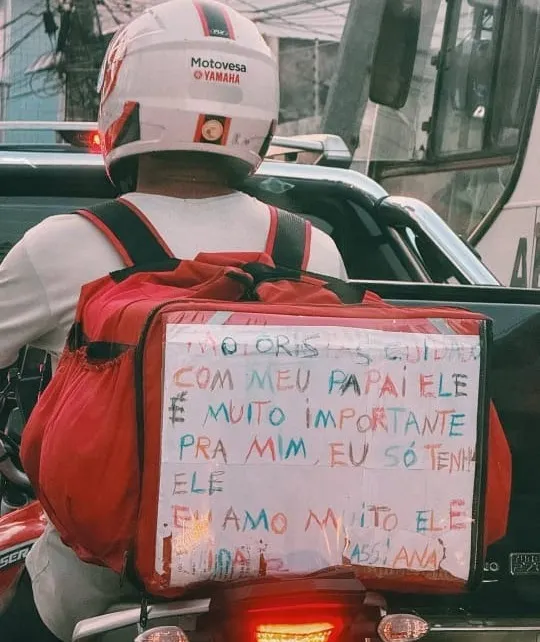 Motovesa
YAMAHA
MOTORISTAS CUIDADO
COM MEU PAPAI ELE
É MUITO IMPORTANTE
PRA MIM, EU SÓ TENH
ELE
EU AMO MUITO ELE
(ASS: ANA)